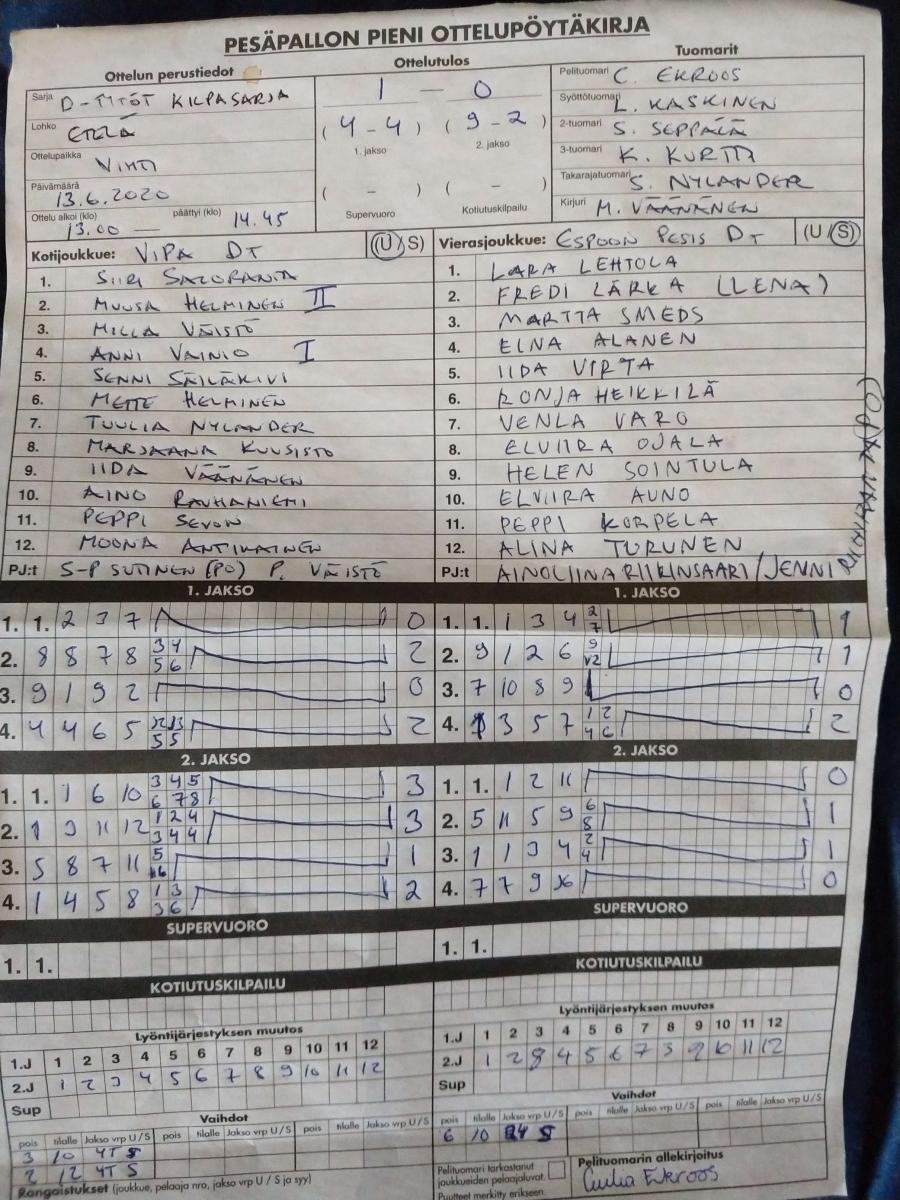 PESÄPALLON PIENI OTTELUPÖYTÄKIRJA
Ottelun perustiedot
Ottelutulos
Tuomarit
Sarja D-TYTÖT KILPASARJA
Lohko ETELÄ
Ottelupaikka VIHTI
Päivämäärä 13.6.2020
Ottelu alkoi (klo) 13.00 — päättyi (klo) 14.45
1 - 0
( 4 - 4 ) ( 9 - 2 )
1. jakso 2. jakso
( - ) ( - )
Supervuoro Kotiutuskilpailu
Pelituomari C. EKROOS
Syöttötuomari L. KASKINEN
2-tuomari S. SEPPÄLÄ
3-tuomari K. KURTTI
Takarajatuomari S. NYLANDER
Kirjuri M. VÄÄNÄNEN
Kotijoukkue: VIPA DT (U/S)
1. SIIRI SALORANTA
2. MUUSA HELMINEN II
3. MILLA VÄISTÖ
4. ANNI VAINIO I
5. SENNI SÄILÄKIVI
6. METTE HELMINEN
7. TUULIA NYLANDER
8. MARJAANA KUUSISTO
9. IIDA VÄÄNÄNEN
10. AINO RAUHANIEMI
11. PEPPI SEVON
12. MOONA ANTIKAINEN
PJ:t S-P SUTINEN (PO) P. VÄISTÖ
Vierasjoukkue: ESPOON PESIS DT (U/S)
1. LARA LEHTOLA
2. FREDI LÄRKA (LLENA)
3. MARTTA SMEDS
4. ELNA ALANEN
5. IIDA VIRTA
6. RONJA HEIKKILÄ
7. VENLA VARO
8. ELVIIRA OJALA
9. HELEN SOINTULA
10. ELVIIRA AUNO
11. PEPPI KORPELA
12. ALINA TURUNEN
PJ:t AINOLIINA RIIKINSAARI/JENNI
1. JAKSO
1. 1. 2 3 7 0
2. 8 8 7 8 3 4 5 6 2
3. 9 1 9 2 0
4. 4 4 6 5 2
1. JAKSO
1. 1. 1 3 4 2 7 1
2. 9 1 2 6 9 12 1
3. 7 10 8 9 0
4. 1 3 5 7 1 2 4 6 2
2. JAKSO
1. 1. 1 6 10 3 4 5 6 7 8 3
2. 1 9 11 12 1 2 4 3 4 4 3
3. 5 8 7 11 5 1
4. 1 4 5 8 1 3 3 6 2
2. JAKSO
1. 1. 1 2 11 0
2. 5 11 5 9 6 8 1
3. 1 1 3 4 2 4 1
4. 7 7 9 0
SUPERVUORO
1. 1.
SUPERVUORO
1. 1.
KOTIUTUSKILPAILU
KOTIUTUSKILPAILU
Lyöntijärjestyksen muutos
1.J 1 2 3 4 5 6 7 8 9 10 11 12
2.J 1 2 3 4 5 6 7 8 9 10 11 12
Sup
Lyöntijärjestyksen muutos
1.J 1 2 3 4 5 6 7 8 9 10 11 12
2.J 1 2 8 4 5 6 7 3 9 10 11 12
Sup
Vaihdot
pois tilalle Jakso vrp U/S pois tilalle Jakso vrp U/S pois tilalle Jakso vrp U/S
3 10 4T S
2 12 4T S
Rangaistukset (joukkue, pelaaja nro, jakso vrp U / S ja syy)
Vaihdot
pois tilalle Jakso vrp U/S pois tilalle Jakso vrp U/S pois tilalle Jakso vrp U/S
6 10 S
Pelituomari tarkastanut joukkueiden pelaajaluvat.
Puutteet merkitty erikseen.
Pelituomarin allekirjoitus